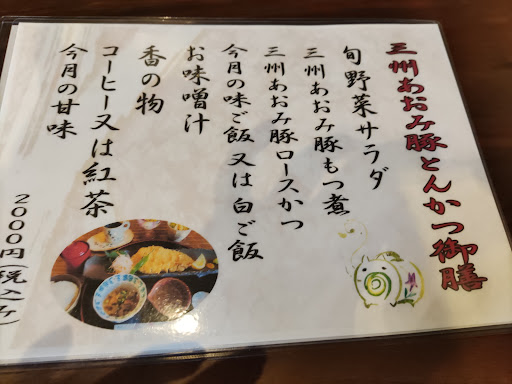 三州あおみ豚とんかつ御膳
旬野菜サラダ
三州あおみ豚もつ煮
三州あおみ豚ロースかつ
今月の味ご飯 又は 白ご飯
お味噌汁
香の物
コーヒー又は紅茶
今月の甘味
2000円(税込み)